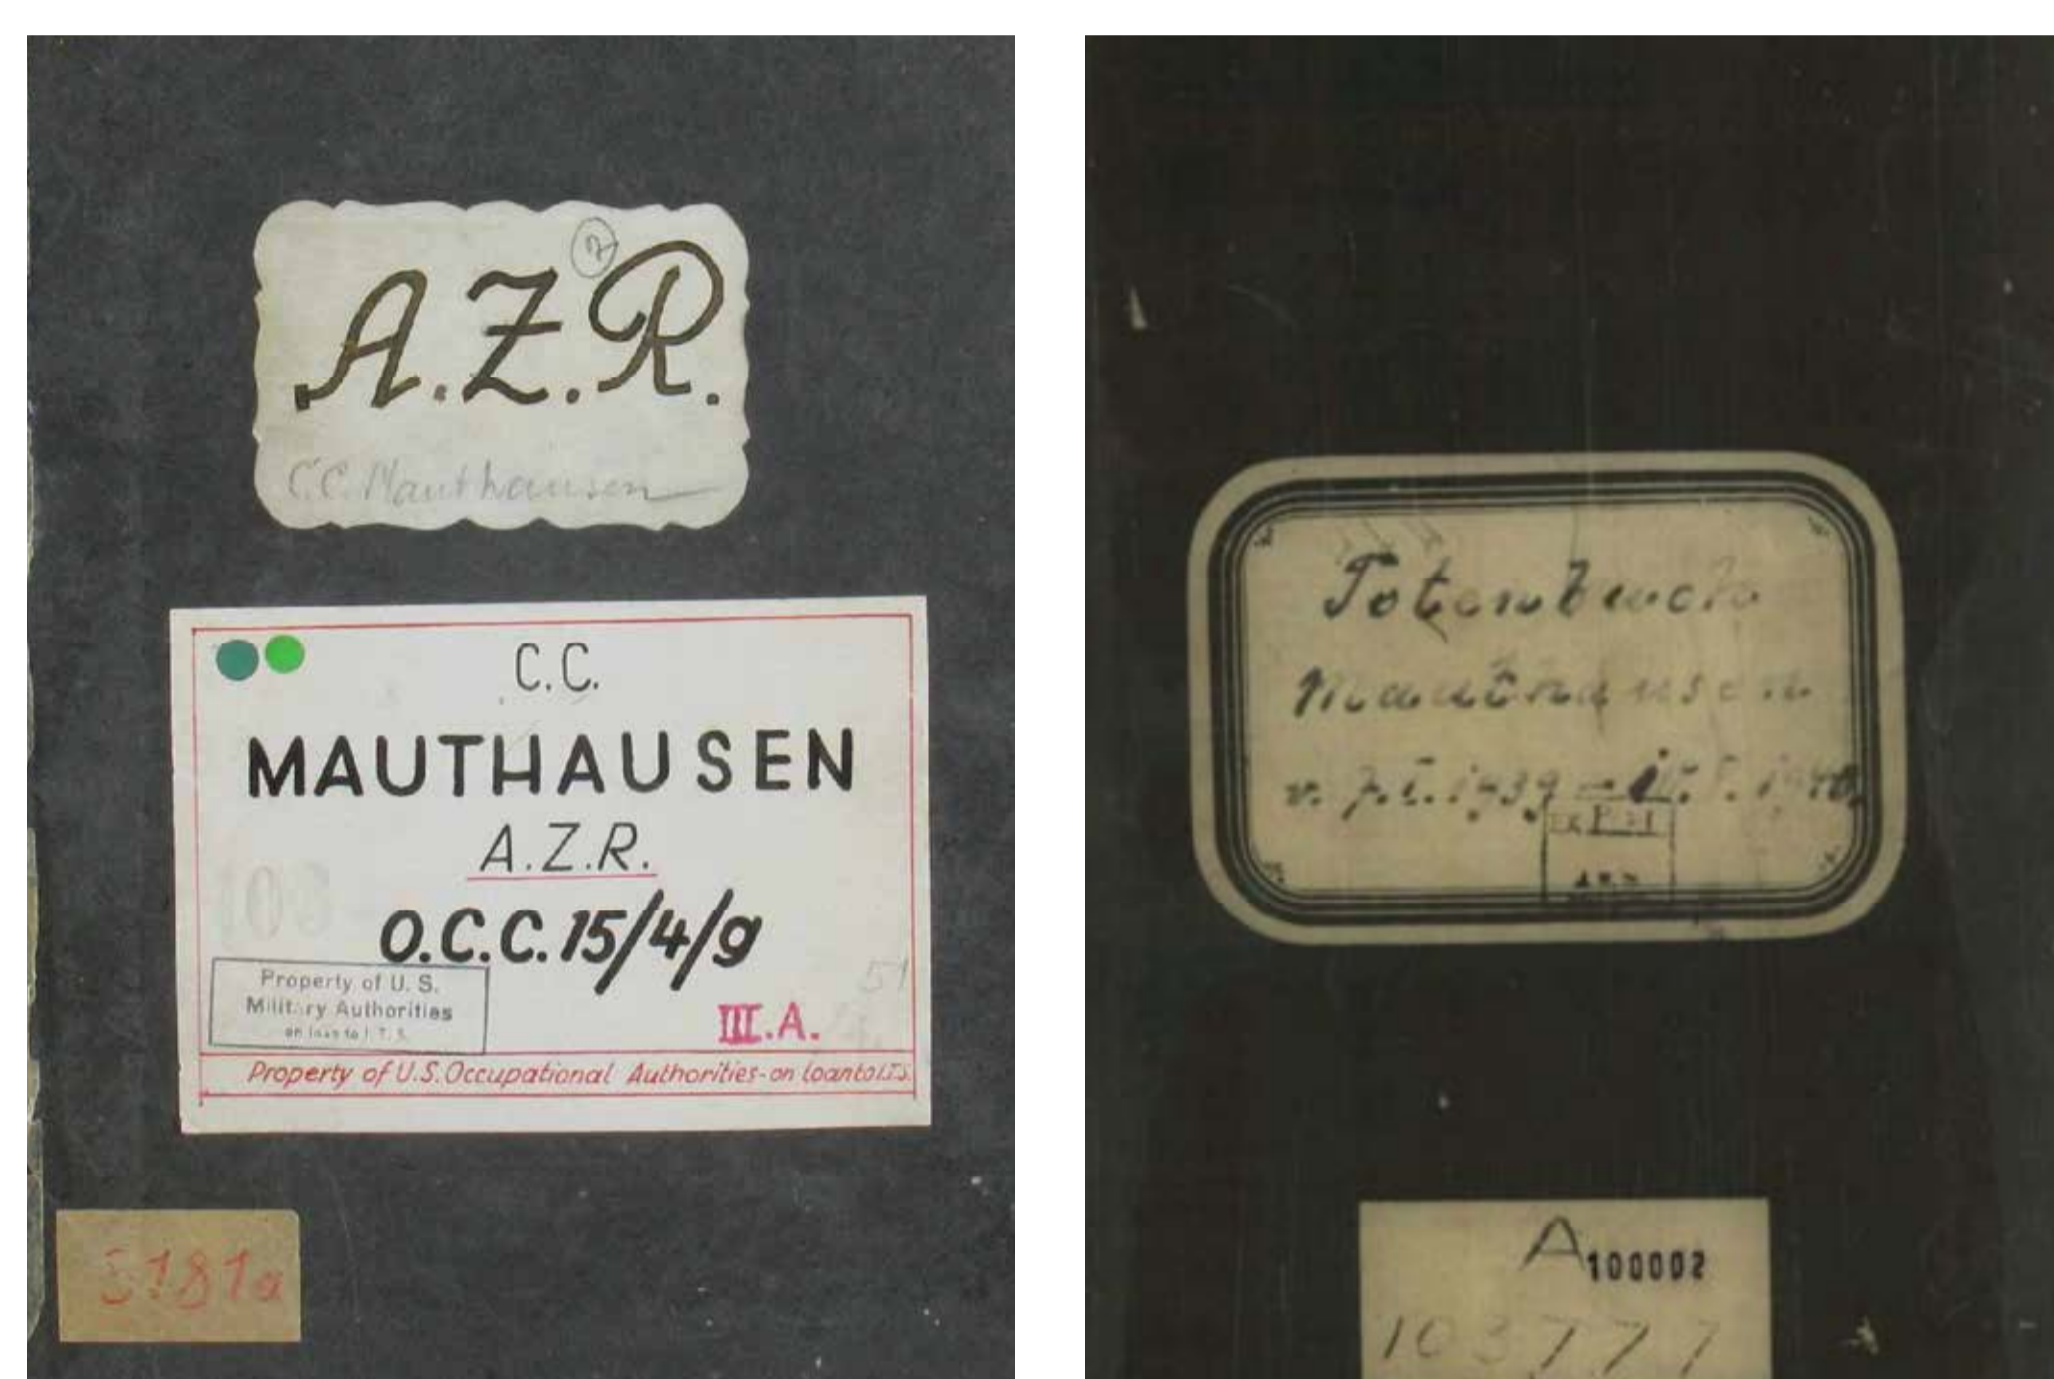 A.Z.R.
C.C. Mauthausen
C.C.
MAUTHAUSEN
A.Z.R.
O.C.C. 15/4/g
Property of U. S.
Military Authorities
on loan to I. T. S.
51
III.A.
Property of U.S. Occupational Authorities - on loan to I.T.S.
5181a
Totenbuch
Mauthausen
1939 1940.
A 100002
103777